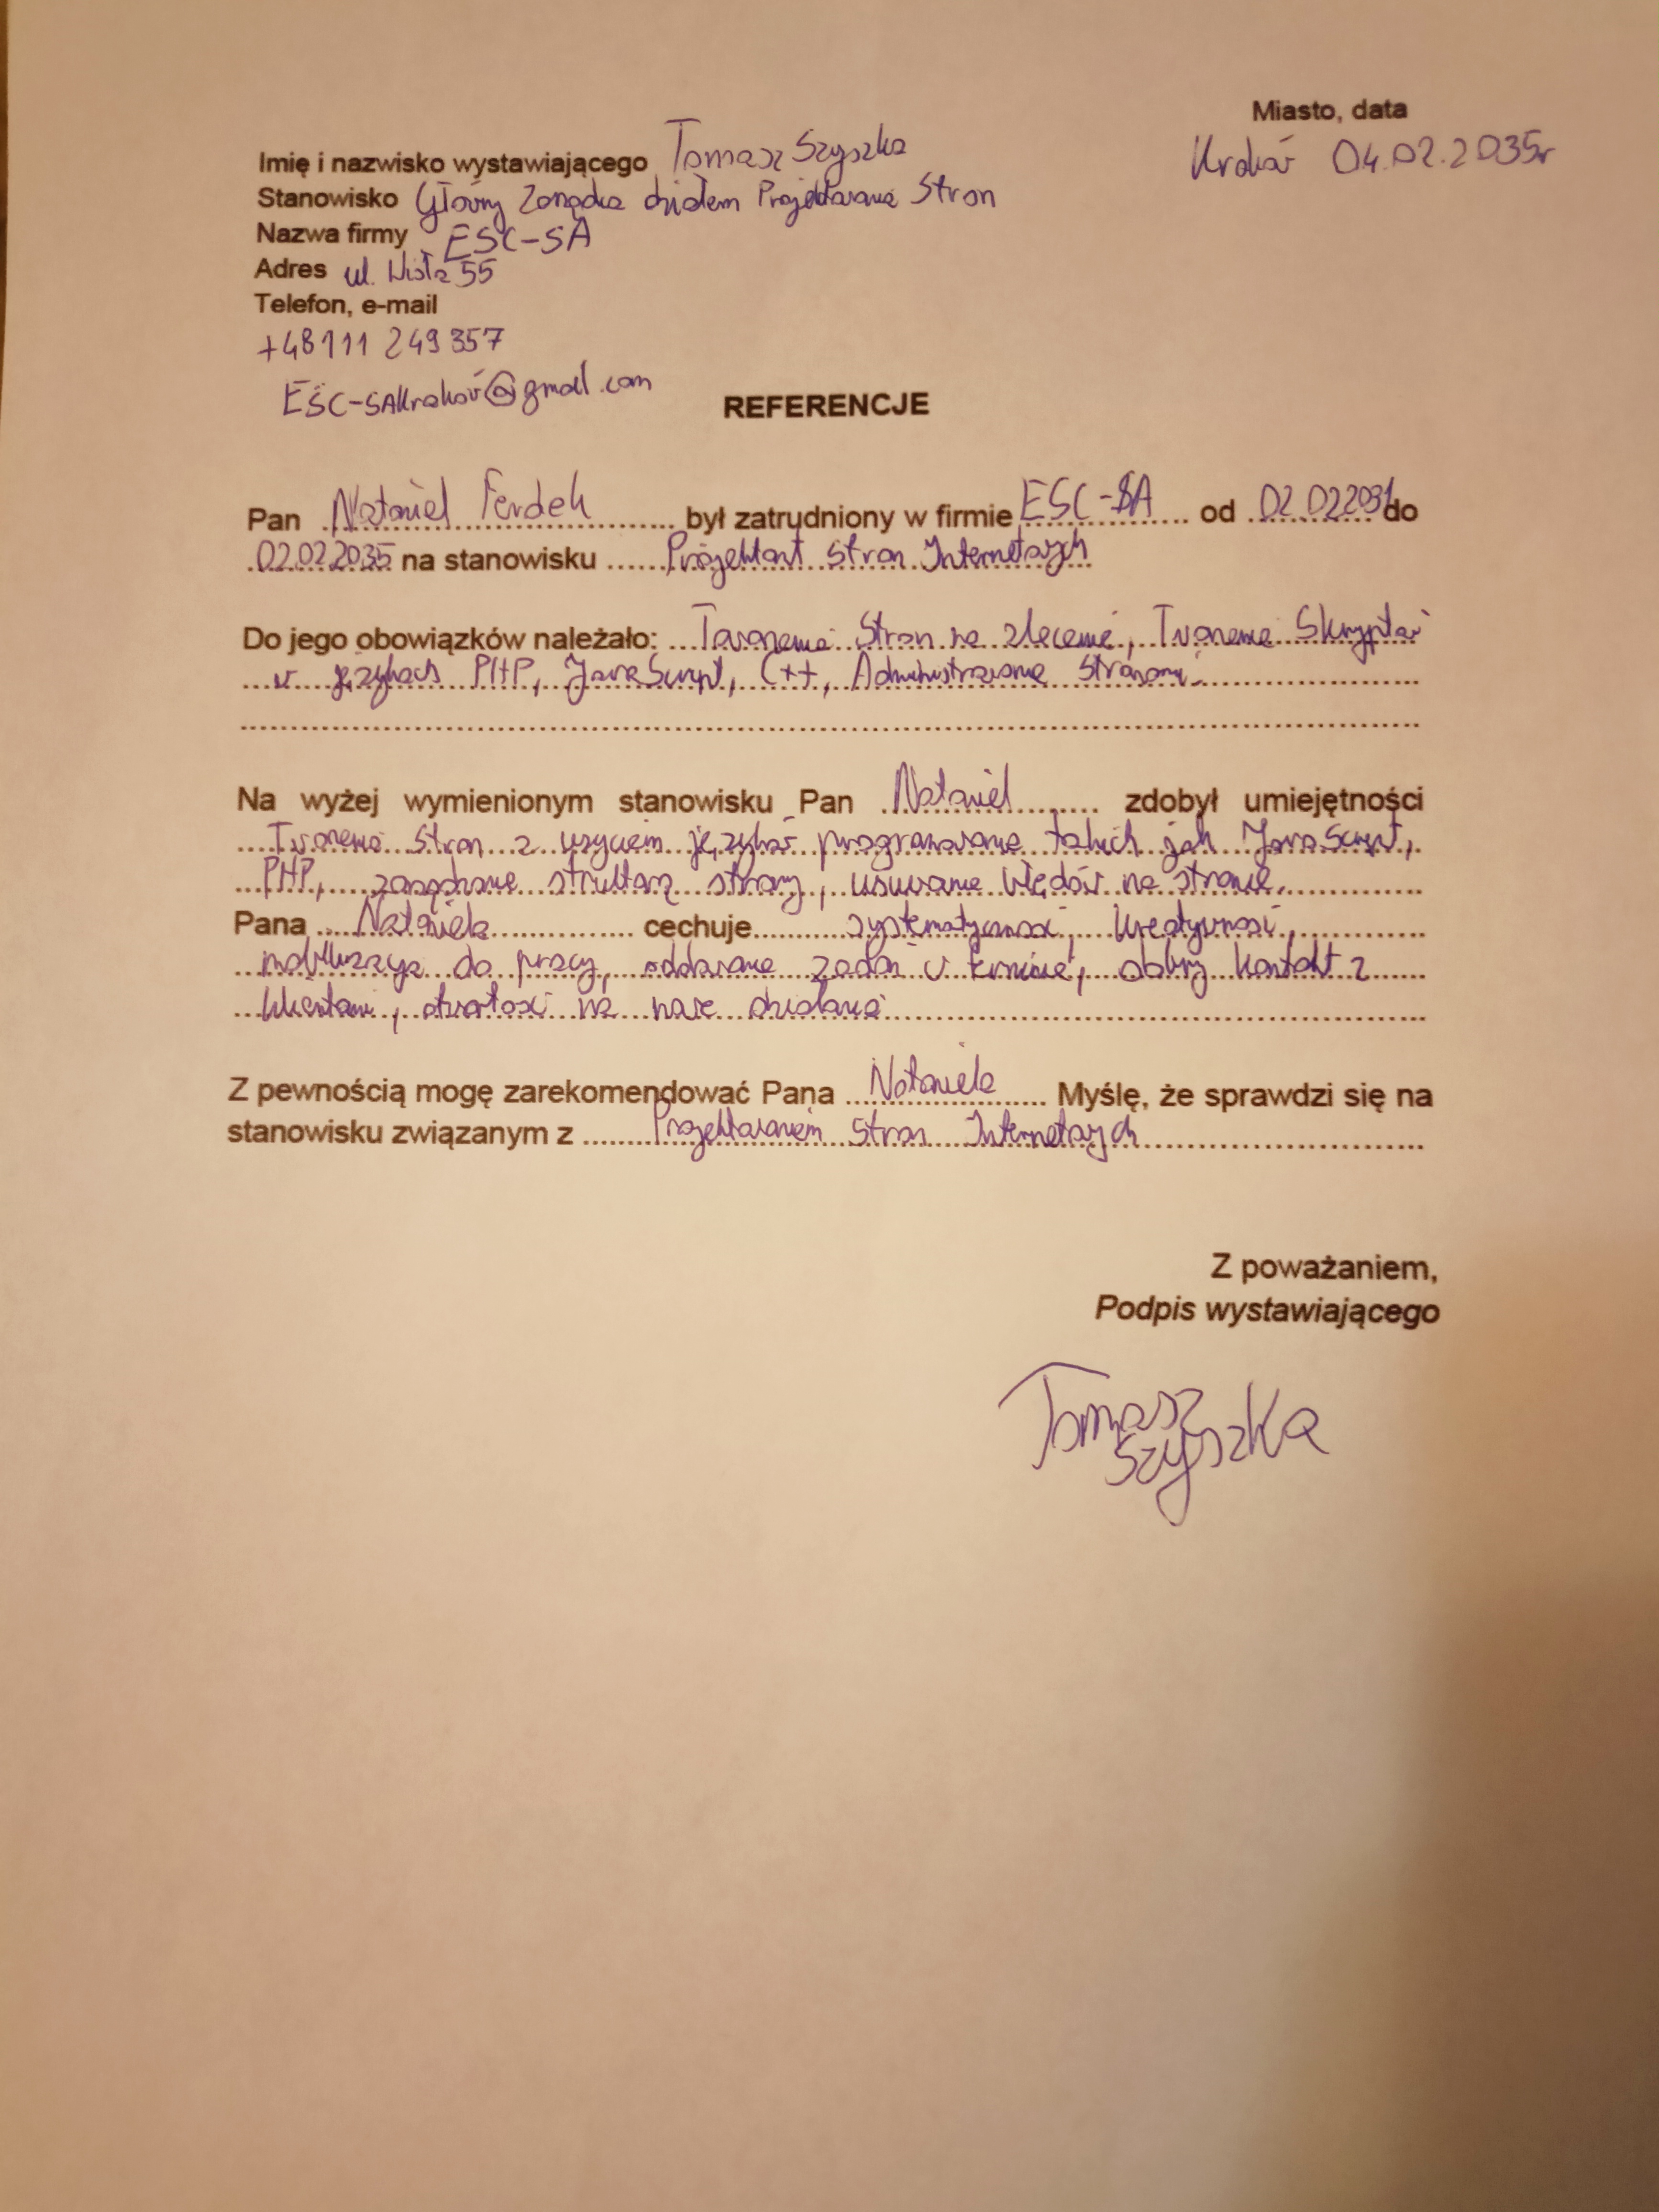 Miasto, data
Kraków 04.02.2035r
Imię i nazwisko wystawiającego Tomasz Szyszka
Stanowisko Główny Zarządca działem Projektowania Stron
Nazwa firmy ESC-SA
Adres ul. Wisła 55
Telefon, e-mail
+48111 249 357
ESC-SAKraków@gmail.com
REFERENCJE
Pan Nataniel Ferdek był zatrudniony w firmie ESC-SA od 02.022031 do
02.02.2035 na stanowisku Projektant Stron Internetowych
Do jego obowiązków należało: Tworzenie Stron na zlecenie, Tworzenie Skryptów
w językach PHP, JavaScript, C++, Administrowanie Stronami.
Na wyżej wymienionym stanowisku Pan Nataniel zdobył umiejętności
Tworzenia Stron z użyciem języków programowania takich jak JavaScript,
PHP, zarządzanie strukturą strony, usuwanie błędów na stronie.
Pana Nataniela cechuje systematyczność, kreatywność,
mobilizacja do pracy, oddawanie zadań w terminie, dobry kontakt z
klientami, otwartość na nowe działania
Z pewnością mogę zarekomendować Pana Nataniela Myślę, że sprawdzi się na
stanowisku związanym z Projektowaniem Stron Internetowych
Z poważaniem,
Podpis wystawiającego
Tomasz
Szyszka